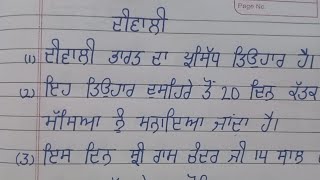 Page No.
ਦੀਵਾਲੀ
(1) ਦੀਵਾਲੀ ਭਾਰਤ ਦਾ ਪ੍ਰਸਿੱਧ ਤਿਉਹਾਰ ਹੈ।
(2) ਇਹ ਤਿਉਹਾਰ ਦੁਸਹਿਰੇ ਤੋਂ 20 ਦਿਨ ਕੱਤਕ
ਮੱਸਿਆ ਨੂੰ ਮਨਾਇਆ ਜਾਂਦਾ ਹੈ।
(3) ਇਸ ਦਿਨ ਸ਼੍ਰੀ ਰਾਮ ਚੰਦਰ ਜੀ 14 ਸਾਲ